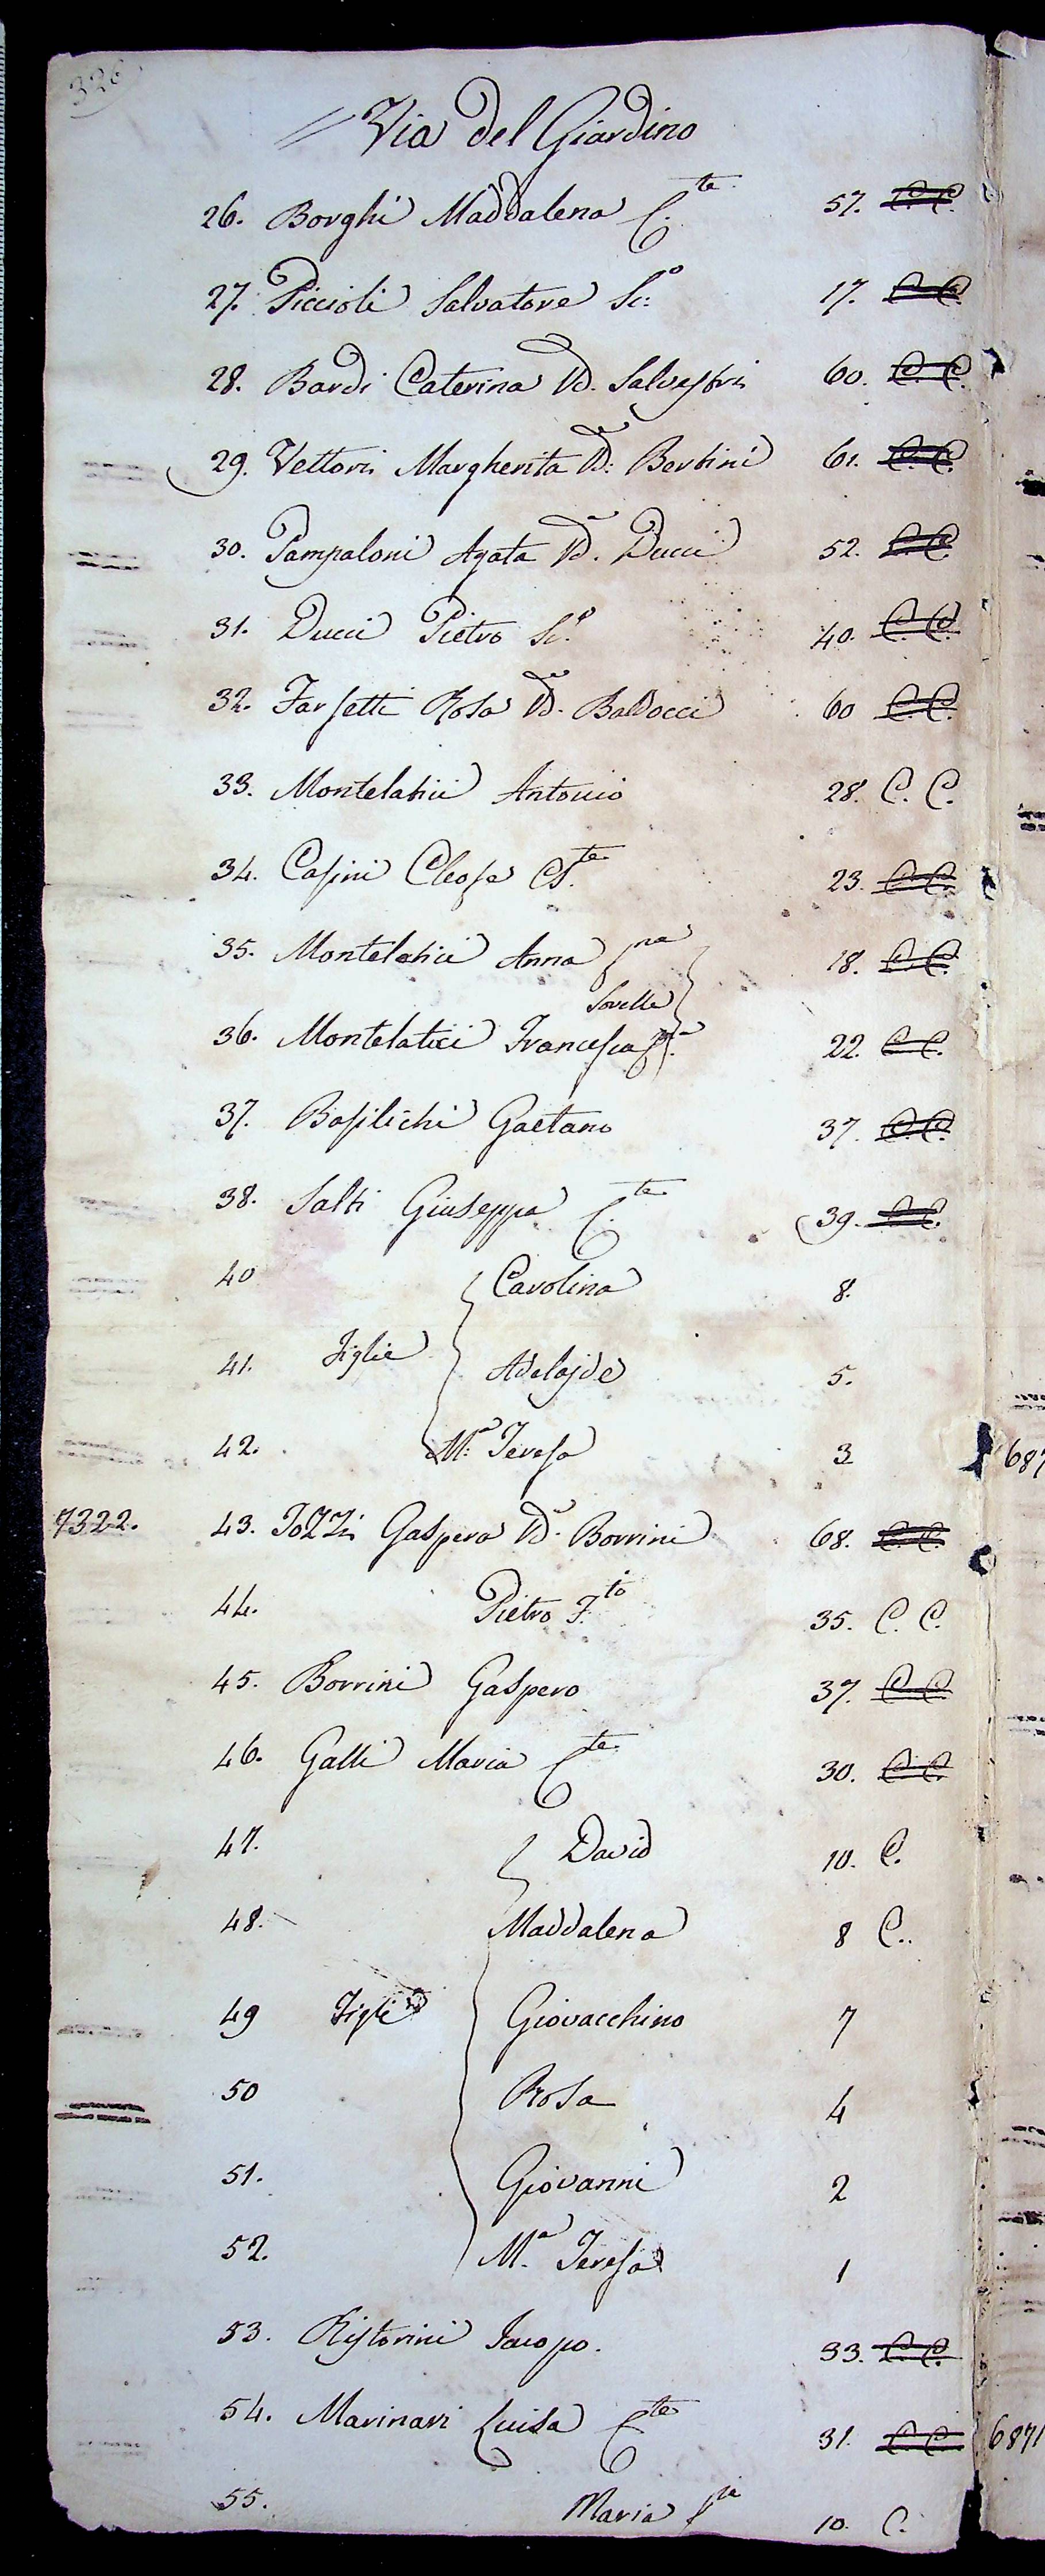 326
Via del Giardino
26. Borghi Maddalena C.te 57. C. C.
27. Piccioli Salvatore Sc:o 17. C. C.
28. Bardi Caterina Vd.a Salvestri 60. C. C.
29. Vettori Margherita Vd:a Berbini 61. C. C.
30. Pampaloni Agata Vd.a Ducci 52. C. C.
31. Ducci Pietro Sc.o 40. C. C.
32. Farsetti Rosa Vd.a Baldocci 60 C. C.
33. Montelatici Antonio 28. C. C.
34. Casini Cleofe C.te 23. C. C.
35. Montelatici Anna 18. C. C.
Sorelle
36. Montelatici Francesca 22. C. C.
37. Basilichi Gaetano 37. C. C.
38. Salti Giuseppa C.te 39. C. C.
40 Carolina 8.
41. Figlie Adelajde 5.
42. M:a Teresa 3
7322. 43. Tozzi Gaspera Vd.a Borrini 68. C. C.
44. Pietro F.to 35. C. C.
45. Borrini Gaspero 37. C. C.
46. Galli Maria C.te 30. C. C.
47. David 10. C.
48. Maddalena 8 C..
49 Figli Giovacchino 7
50 Rosa 4
51. Giovanni 2
52. M.a Teresa 1
53. Ristorini Jacopo. 33. C. C.
54. Marinari Luisa C.te 31. C. C.
55. Maria f.ia 10. C.
687
6871